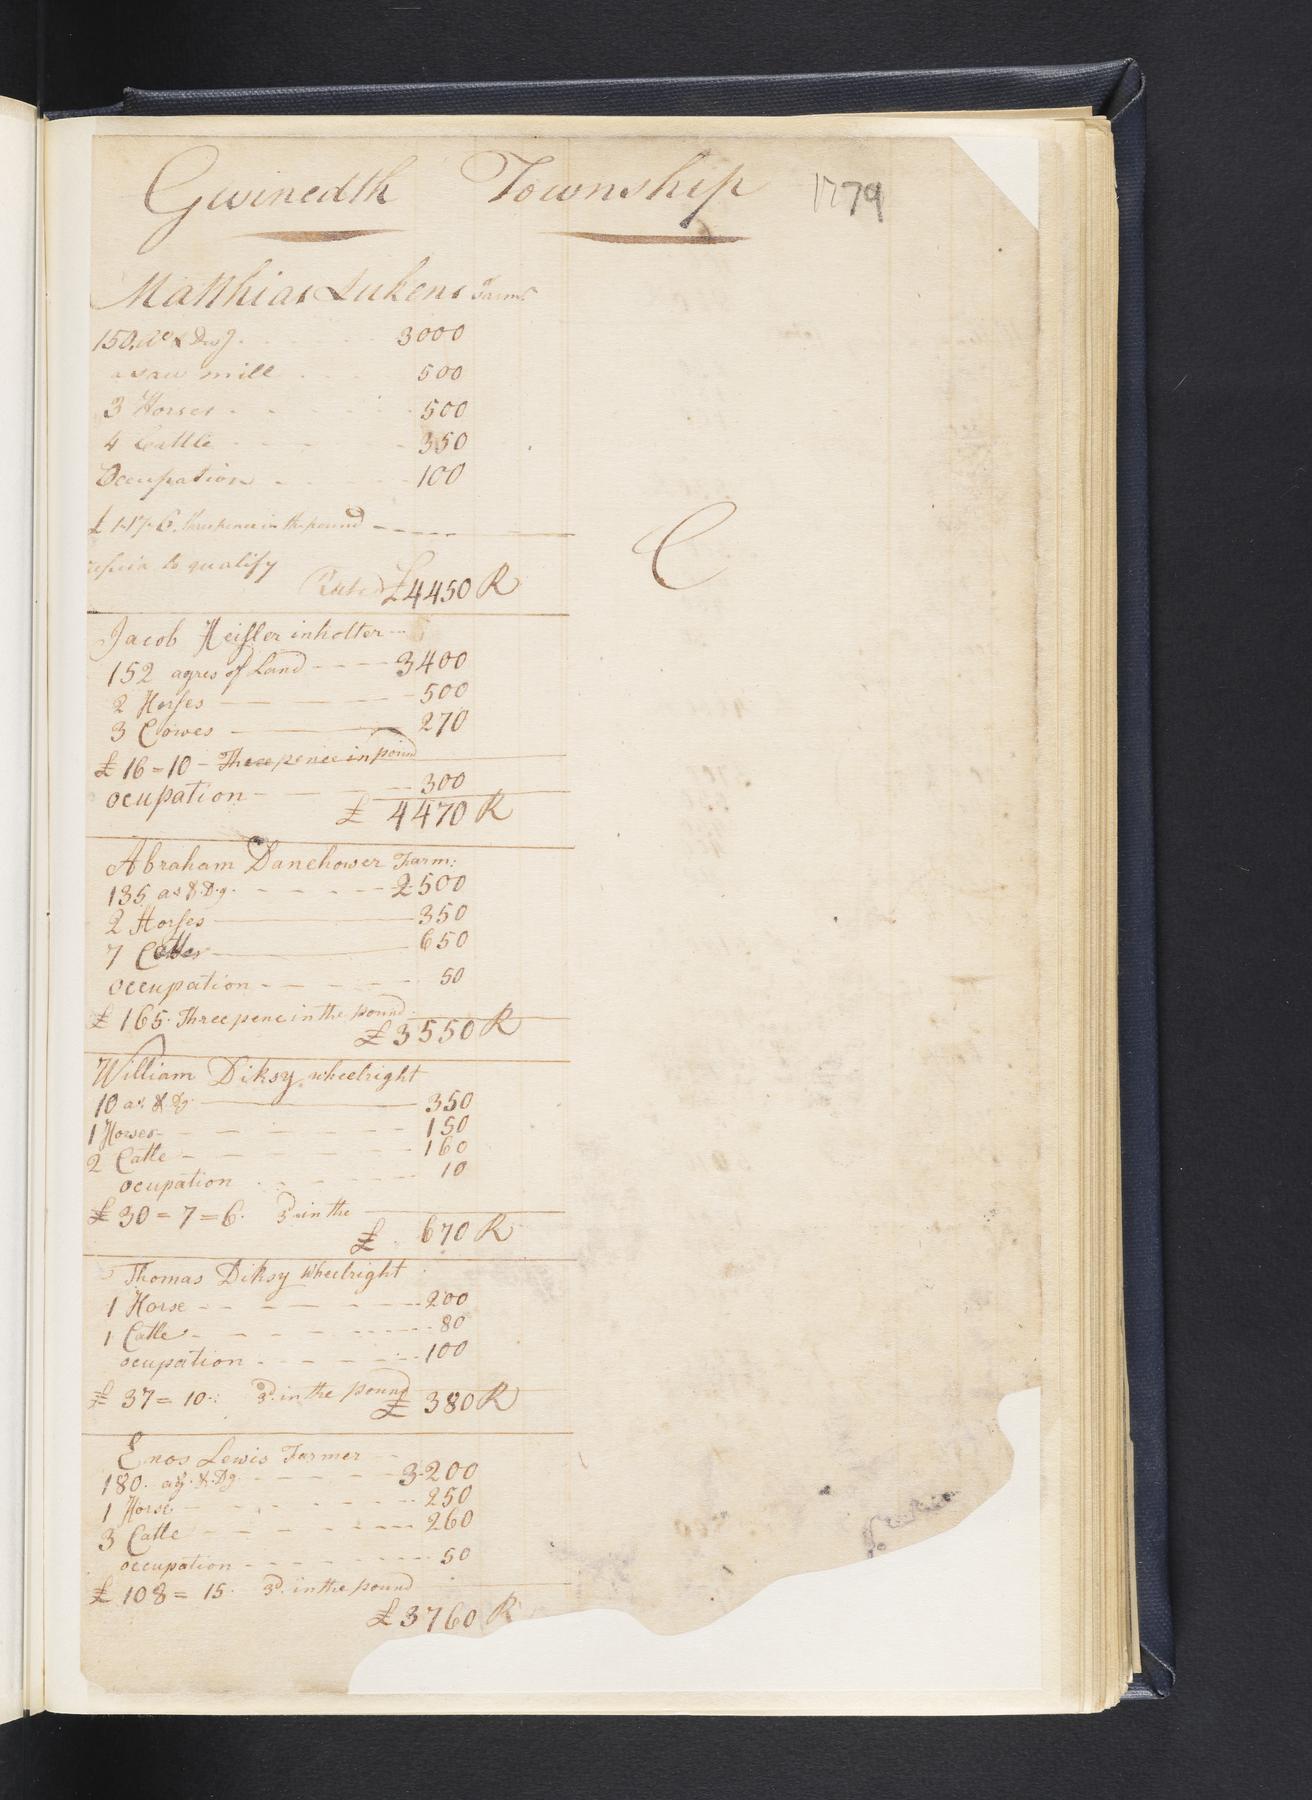 Gwinedth Township 1779
Matthias Lukens Farmr
150. Ac & Dwg 3000
a saw mill 500
3 Horses 500
4 Cattle 350
Occupation 100
£ 1-17-6. three pence in the pound
to qualify
Rated £4450 R
C
Jacob Heisler inholter
152 agres of Land 3400
2 Horses 500
3 Cowes 270
£ 16=10 - Three pence in pound
ocupation 300
£ 4470 R
Abraham Danehower Farm:
135 as & Dg. 2500
2 Horses 350
7 650
occupation 50
£ 165. Three penc in the pound
£3550 R
William Diksy wheelright
10 as. & Dg 350
1 Horses 150
2 Catle 160
ocupation 10
£ 30=7=6. 3d in the
£ 670 R
Thomas Diksy Wheelright
1 Horse 200
1 Catle 80
ocupation 100
£ 37=10: 3d. in the pound
£ 380 R
Enos Lewis Farmer
180. as. & Dg. 3200
1 Horse 250
3 Catle 260
occupation 50
£ 108=15. 3d. in the pound
£3760 R